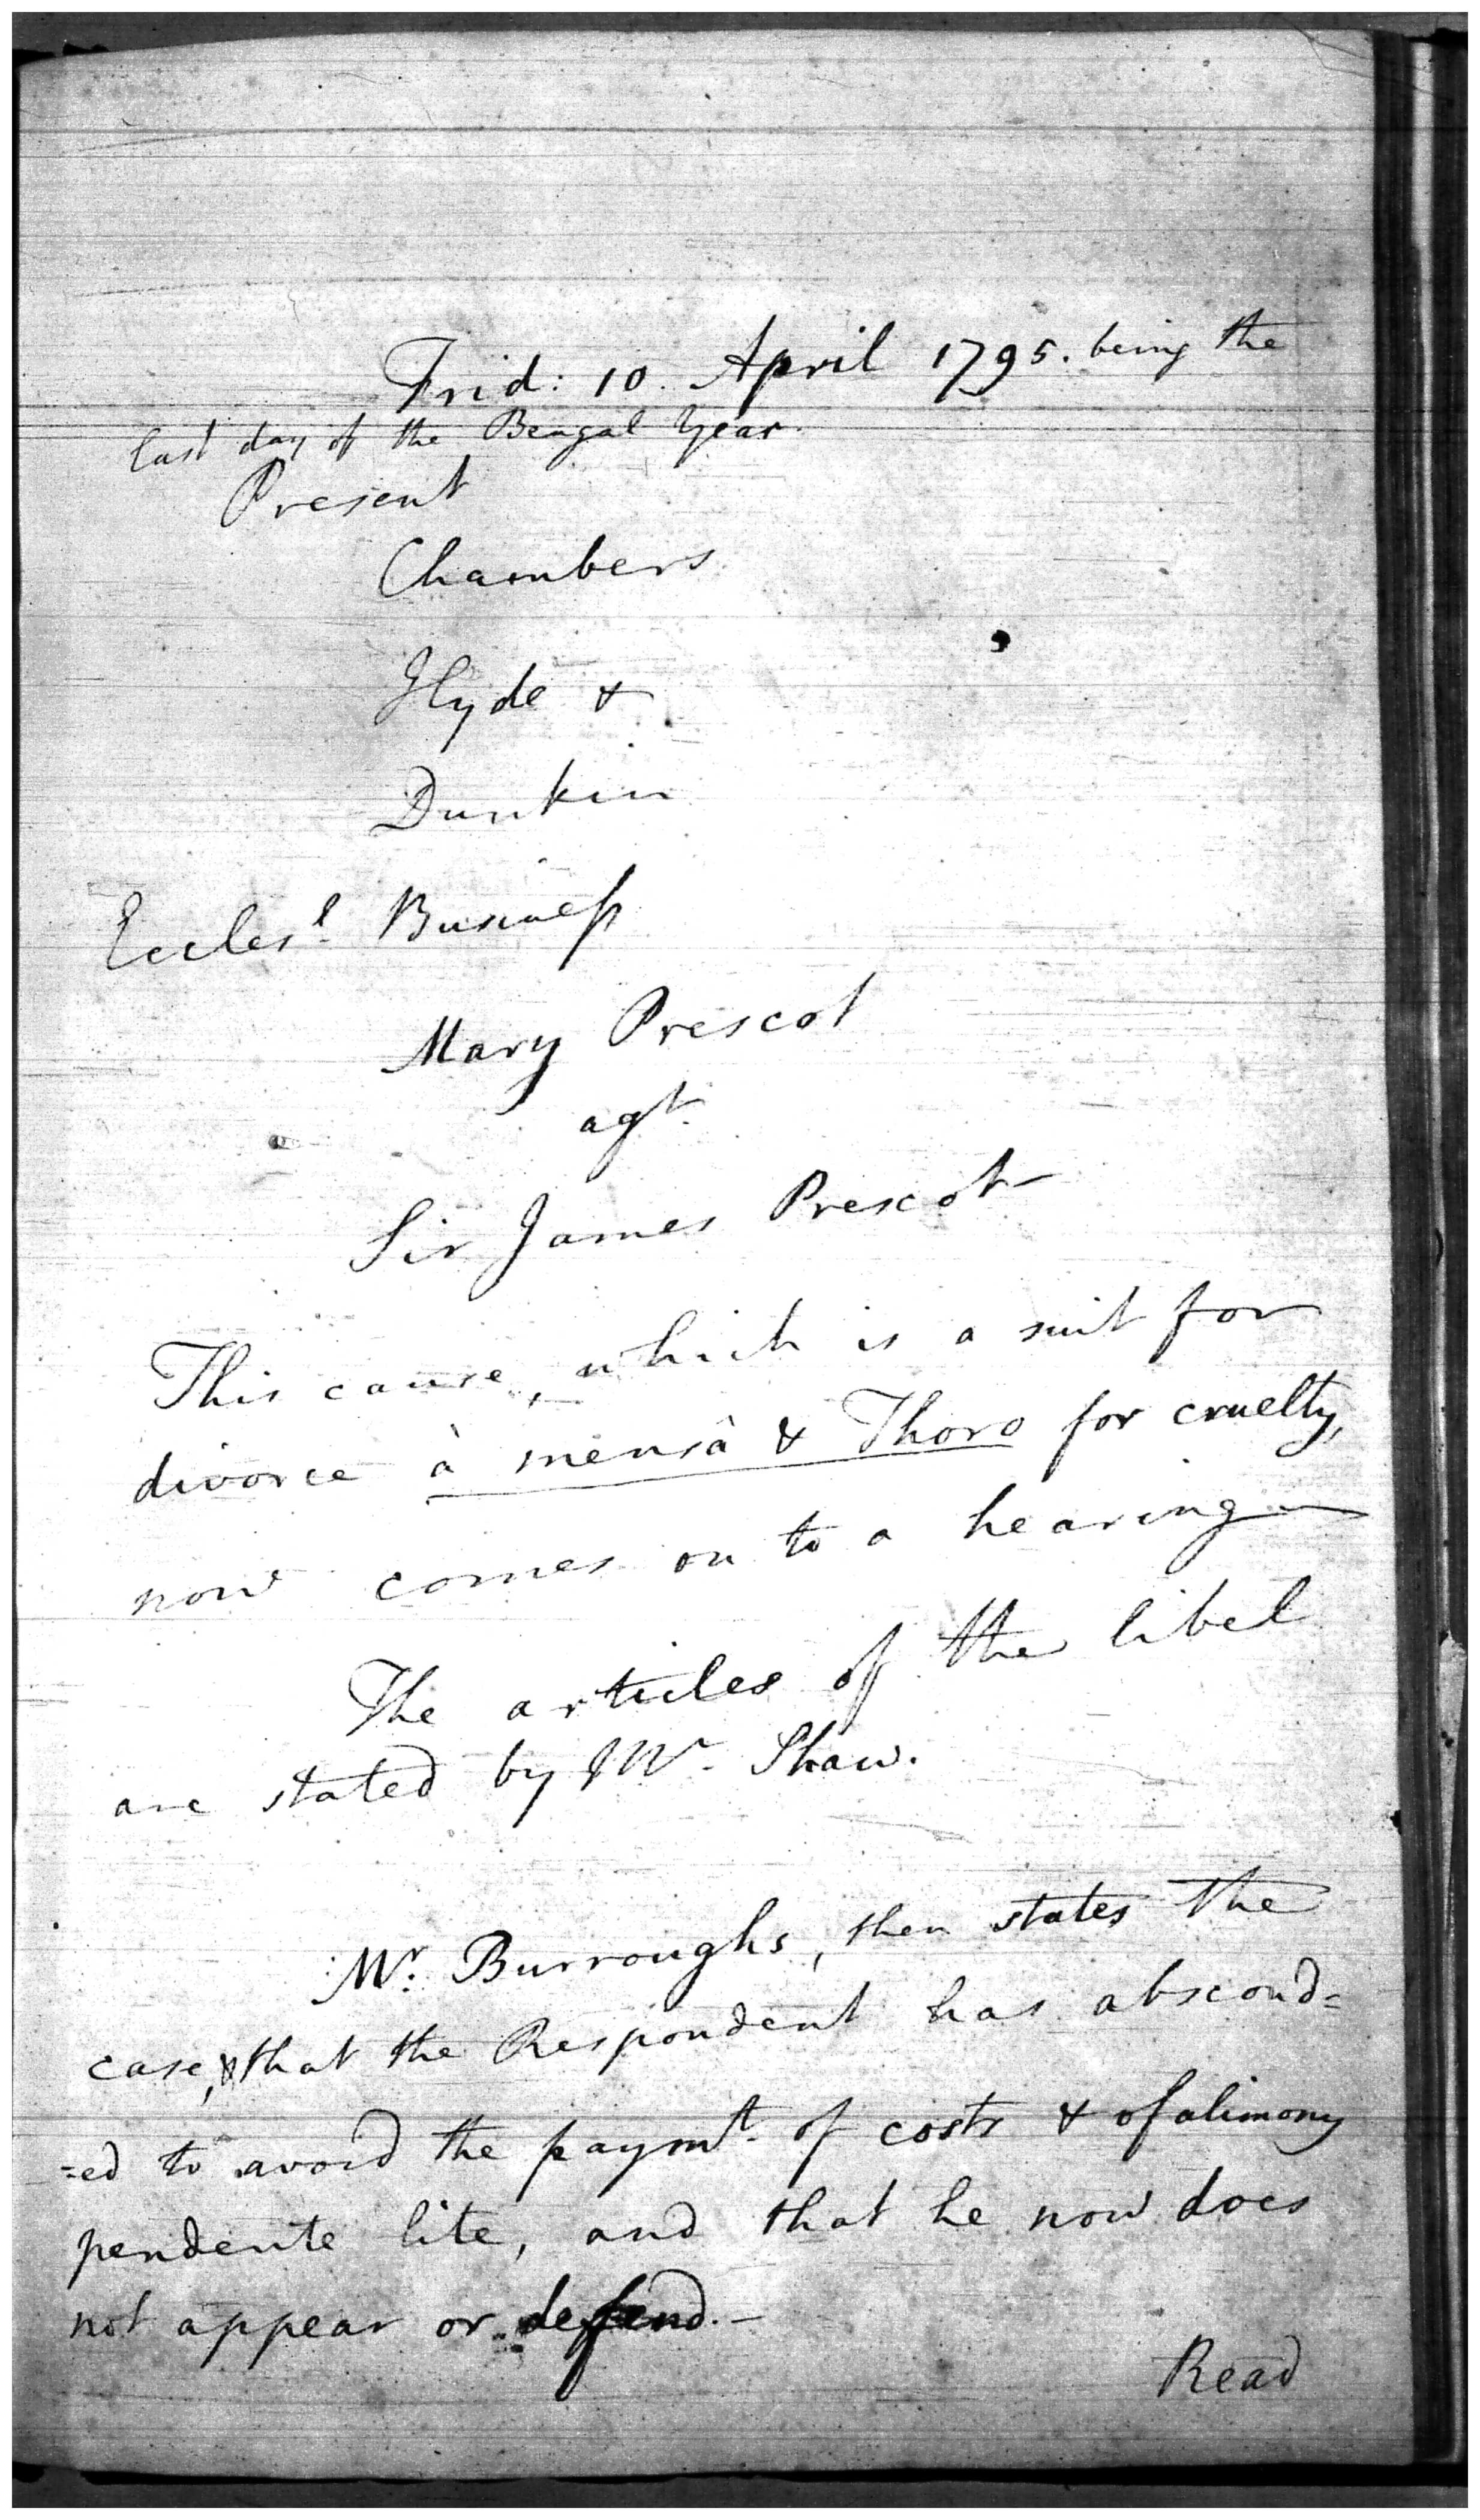 Frid: 10. April 1795. being the
last day of the Bengal Year.
Present
Chambers
Hyde &
Dunkin
Eccles.l Business
Mary Prescot
agt.
Sir James Prescot
This cause, which is a suit for
divorce à mensâ & Thoro for cruelty,
now comes on to a hearing
The articles of the libel
are stated by Mr. Shaw.
Mr. Burroughs, then states the
case, & that the Respondent has abscond=
=ed to avoid the paymt. of costs & of alimony
pendente lite, and that he now does
not appear or defend.-
Read